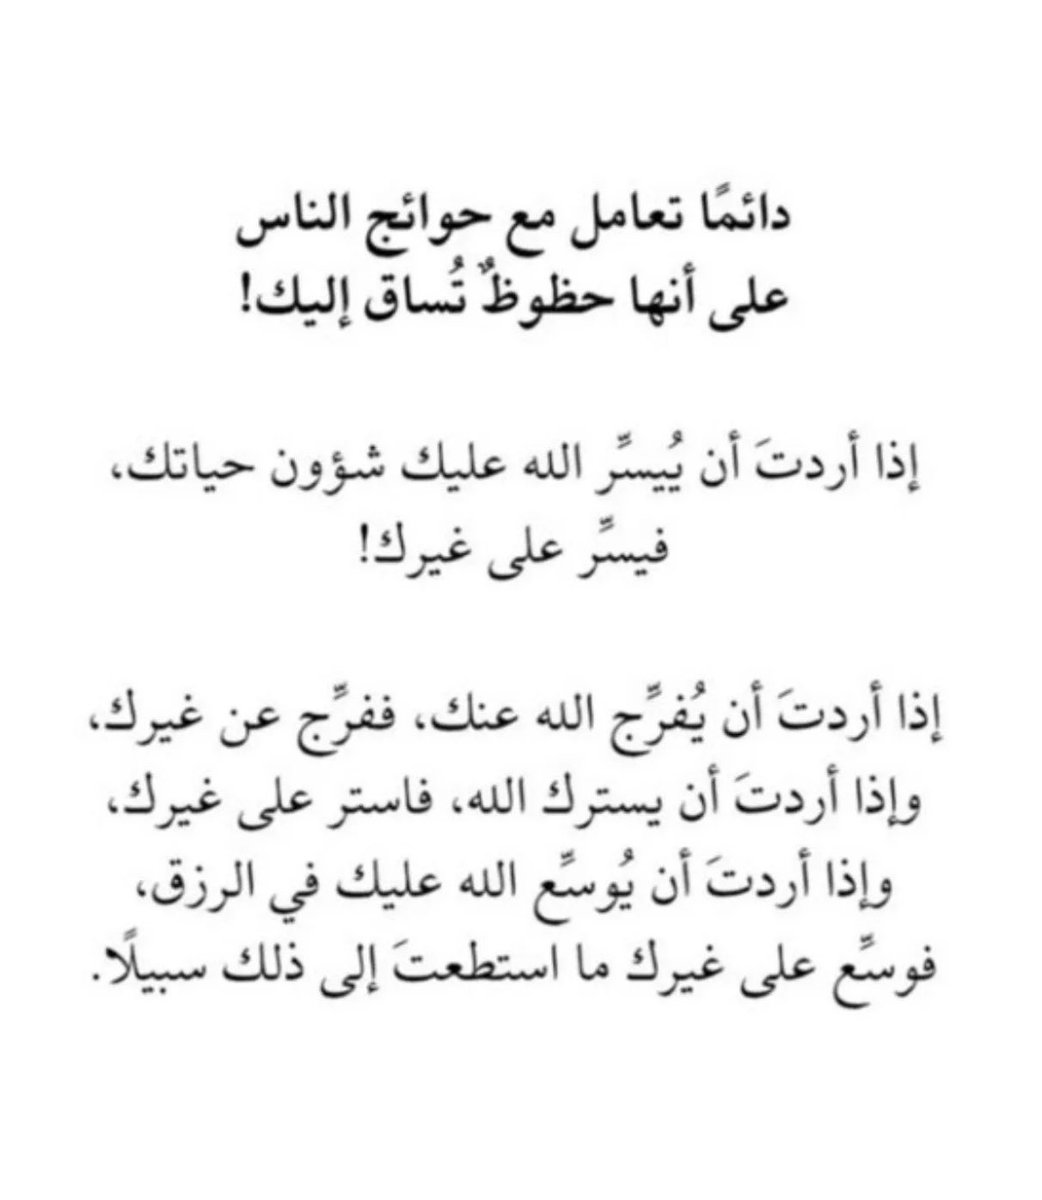 دائمًا تعامل مع حوائج الناس
على أنها حظوظٌ تُساق إليك!
إذا أردتَ أن يُيسِّر الله عليك شؤون حياتك،
فيسِّر على غيرك!
إذا أردتَ أن يُفرِّج الله عنك، ففرِّج عن غيرك،
وإذا أردتَ أن يسترك الله، فاستر على غيرك،
وإذا أردتَ أن يُوسِّع الله عليك في الرزق،
فوسِّع على غيرك ما استطعتَ إلى ذلك سبيلًا.